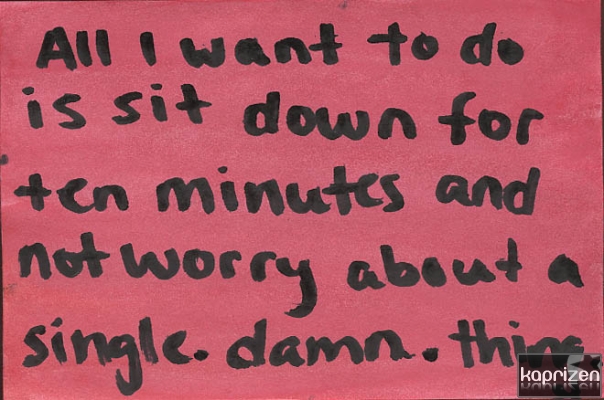 All I want to do
is sit down for
ten minutes and
not worry about a
single. damn. thing
kaprizen